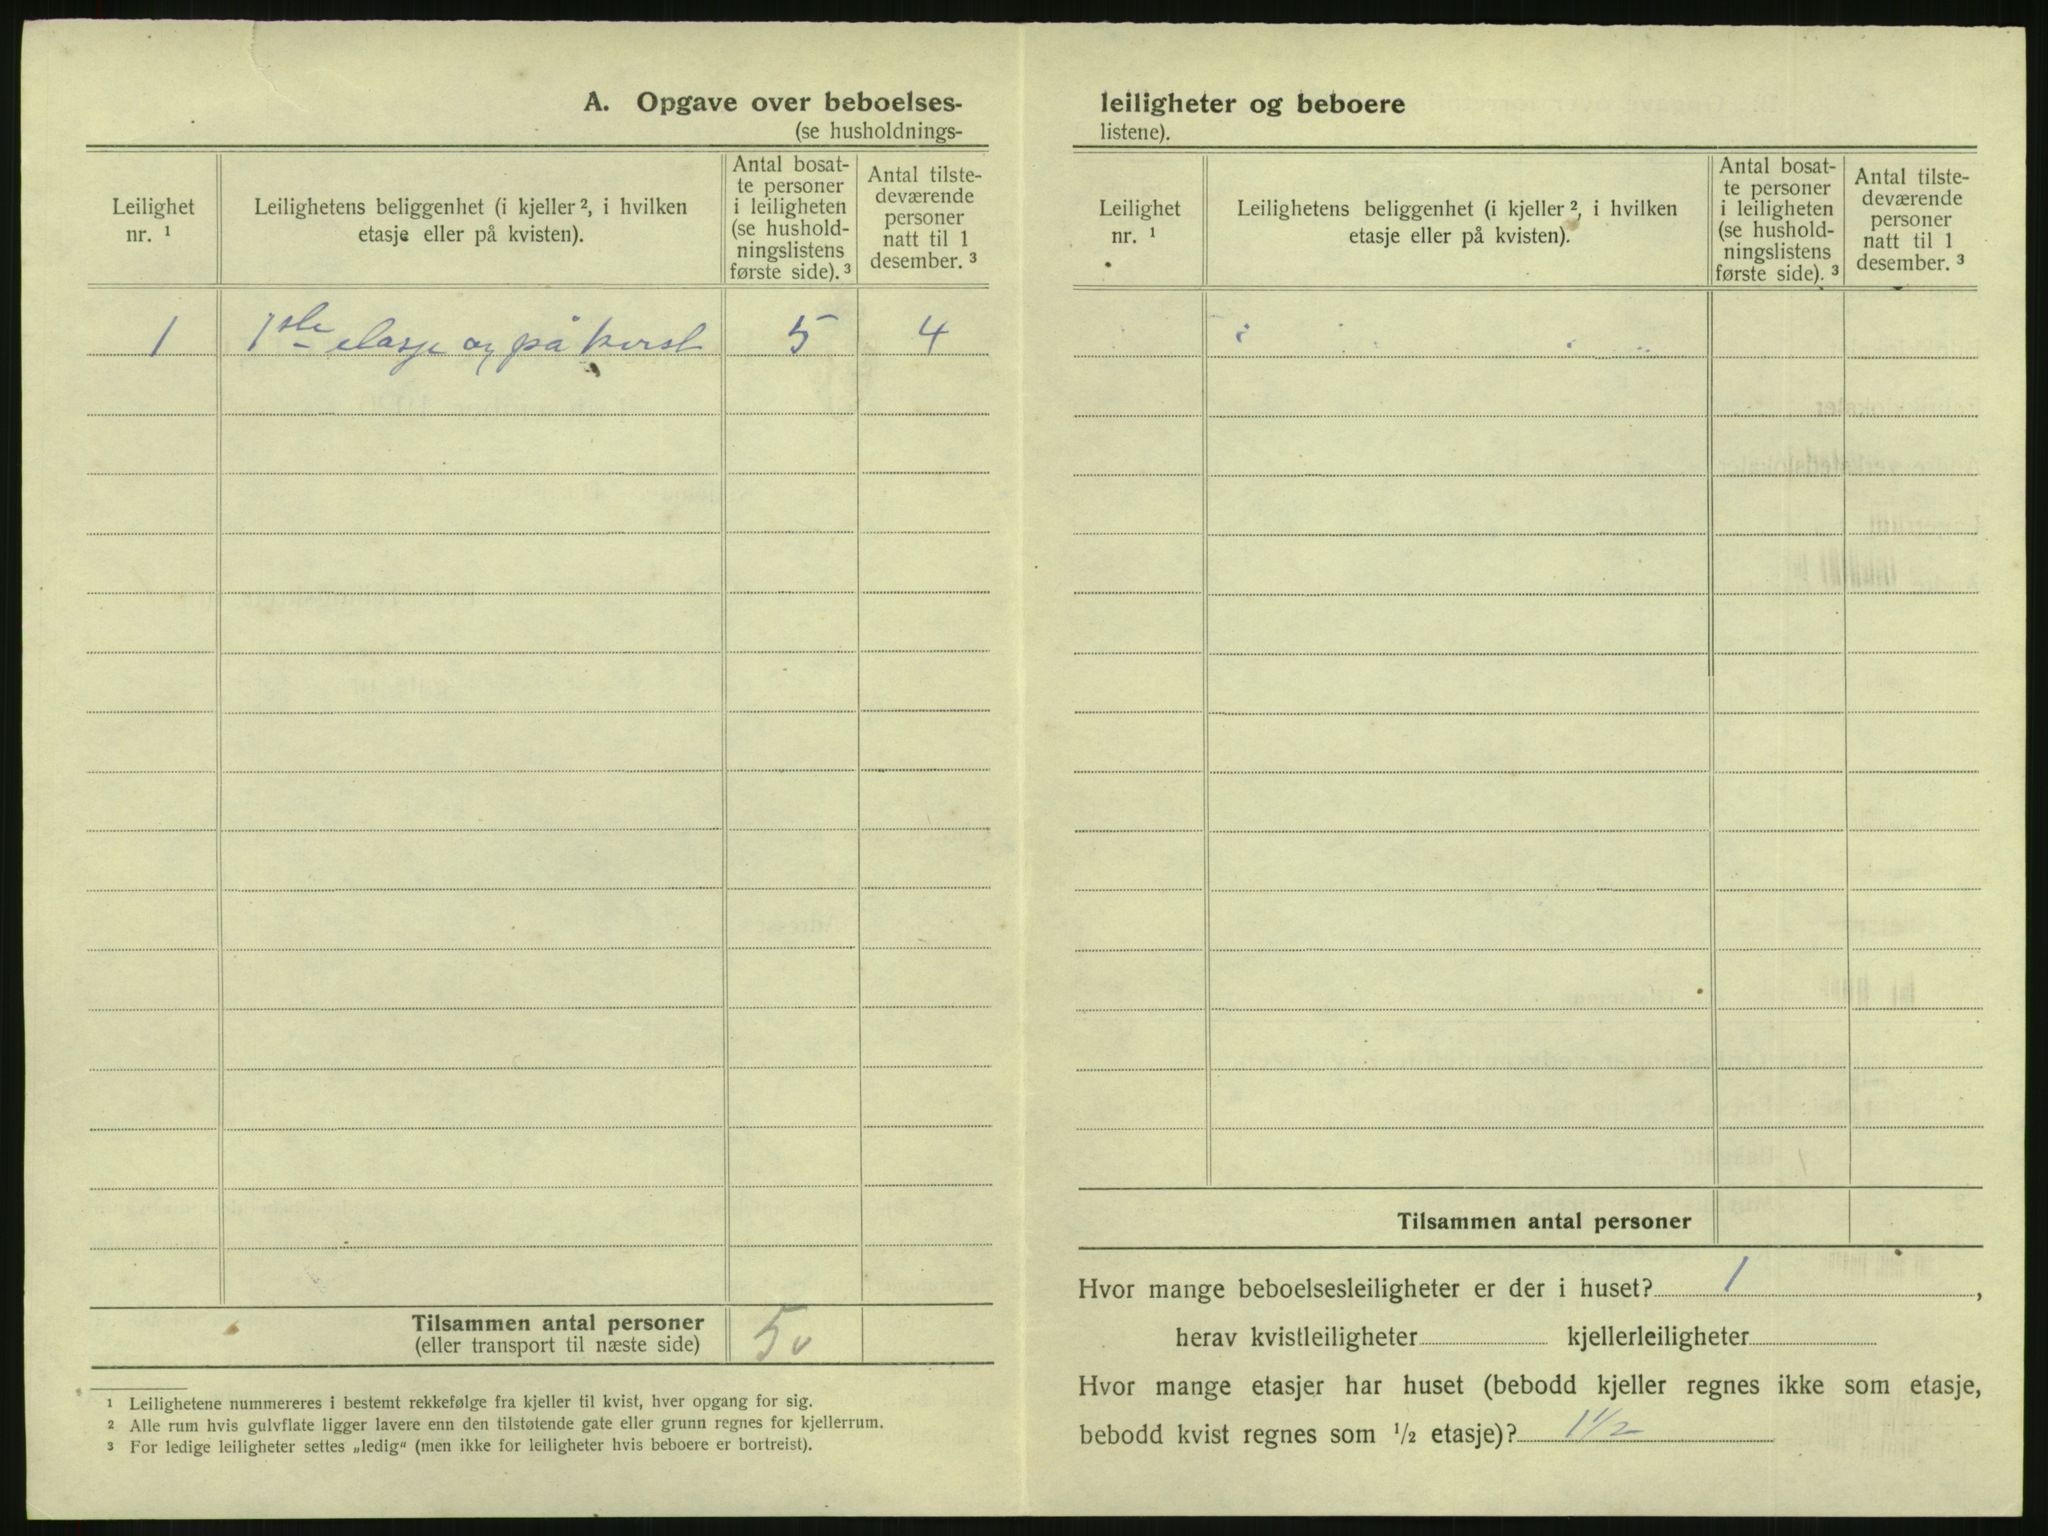 A. Opgave over beboelses-
(se husholdnings-
Leilighet nr. ¹
Leilighetens beliggenhet (i kjeller ², i hvilken etasje eller på kvisten).
Antal bosat-
te personer
i leiligheten
(se hushold-
ningslistens
første side). ³
Antal tilste-
deværende
personer
natt til 1
desember. ³
1 1ste etasje og på kvist 5 4
Tilsammen antal personer 5
(eller transport til næste side)
¹ Leilighetene nummereres i bestemt rekkefølge fra kjeller til kvist, hver opgang for sig.
² Alle rum hvis gulvflate ligger lavere enn den tilstøtende gate eller grunn regnes for kjellerrum.
³ For ledige leiligheter settes „ledig“ (men ikke for leiligheter hvis beboere er bortreist).
leiligheter og beboere
listene).
Leilighet nr. ¹
Leilighetens beliggenhet (i kjeller ², i hvilken etasje eller på kvisten).
Antal bosat-
te personer
i leiligheten
(se hushold-
ningslistens
første side). ³
Antal tilste-
deværende
personer
natt til 1
desember. ³
Tilsammen antal personer
Hvor mange beboelsesleiligheter er der i huset? 1,
herav kvistleiligheter kjellerleiligheter
Hvor mange etasjer har huset (bebodd kjeller regnes ikke som etasje,
bebodd kvist regnes som ½ etasje)? 1½